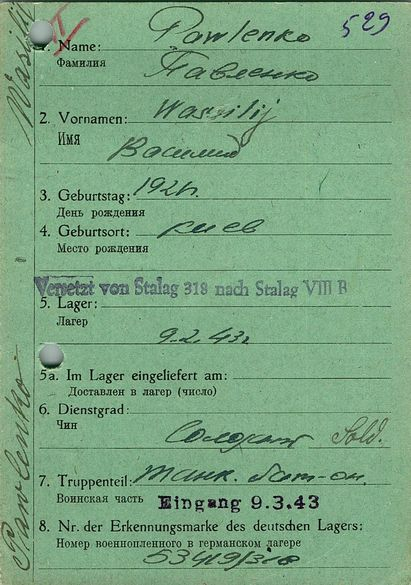 II
529
1. Name: Pawlenko
Фамилия Павленко
2. Vornamen: Wassilij
Имя Василий
3. Geburtstag: 192
День рождения
4. Geburtsort: Киев
Место рождения
Versetzt von Stalag 319 nach Stalag VIII B
5. Lager:
Лагер
9.2.43г
5a. Im Lager eingeliefert am:
Доставлен в лагер (число)
6. Dienstgrad:
Чин Солдат Sold.
7. Truppenteil: танк. бат-он.
Воинская часть Eingang 9.3.43
8. Nr. der Erkennungsmarke des deutschen Lagers:
Номер военнопленного в германском лагере
Pawlenko Wassilij